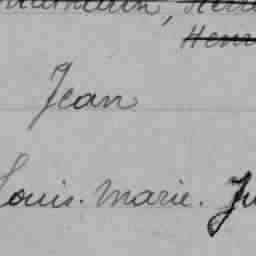 Henr
Jean
Louis. Marie. Ju